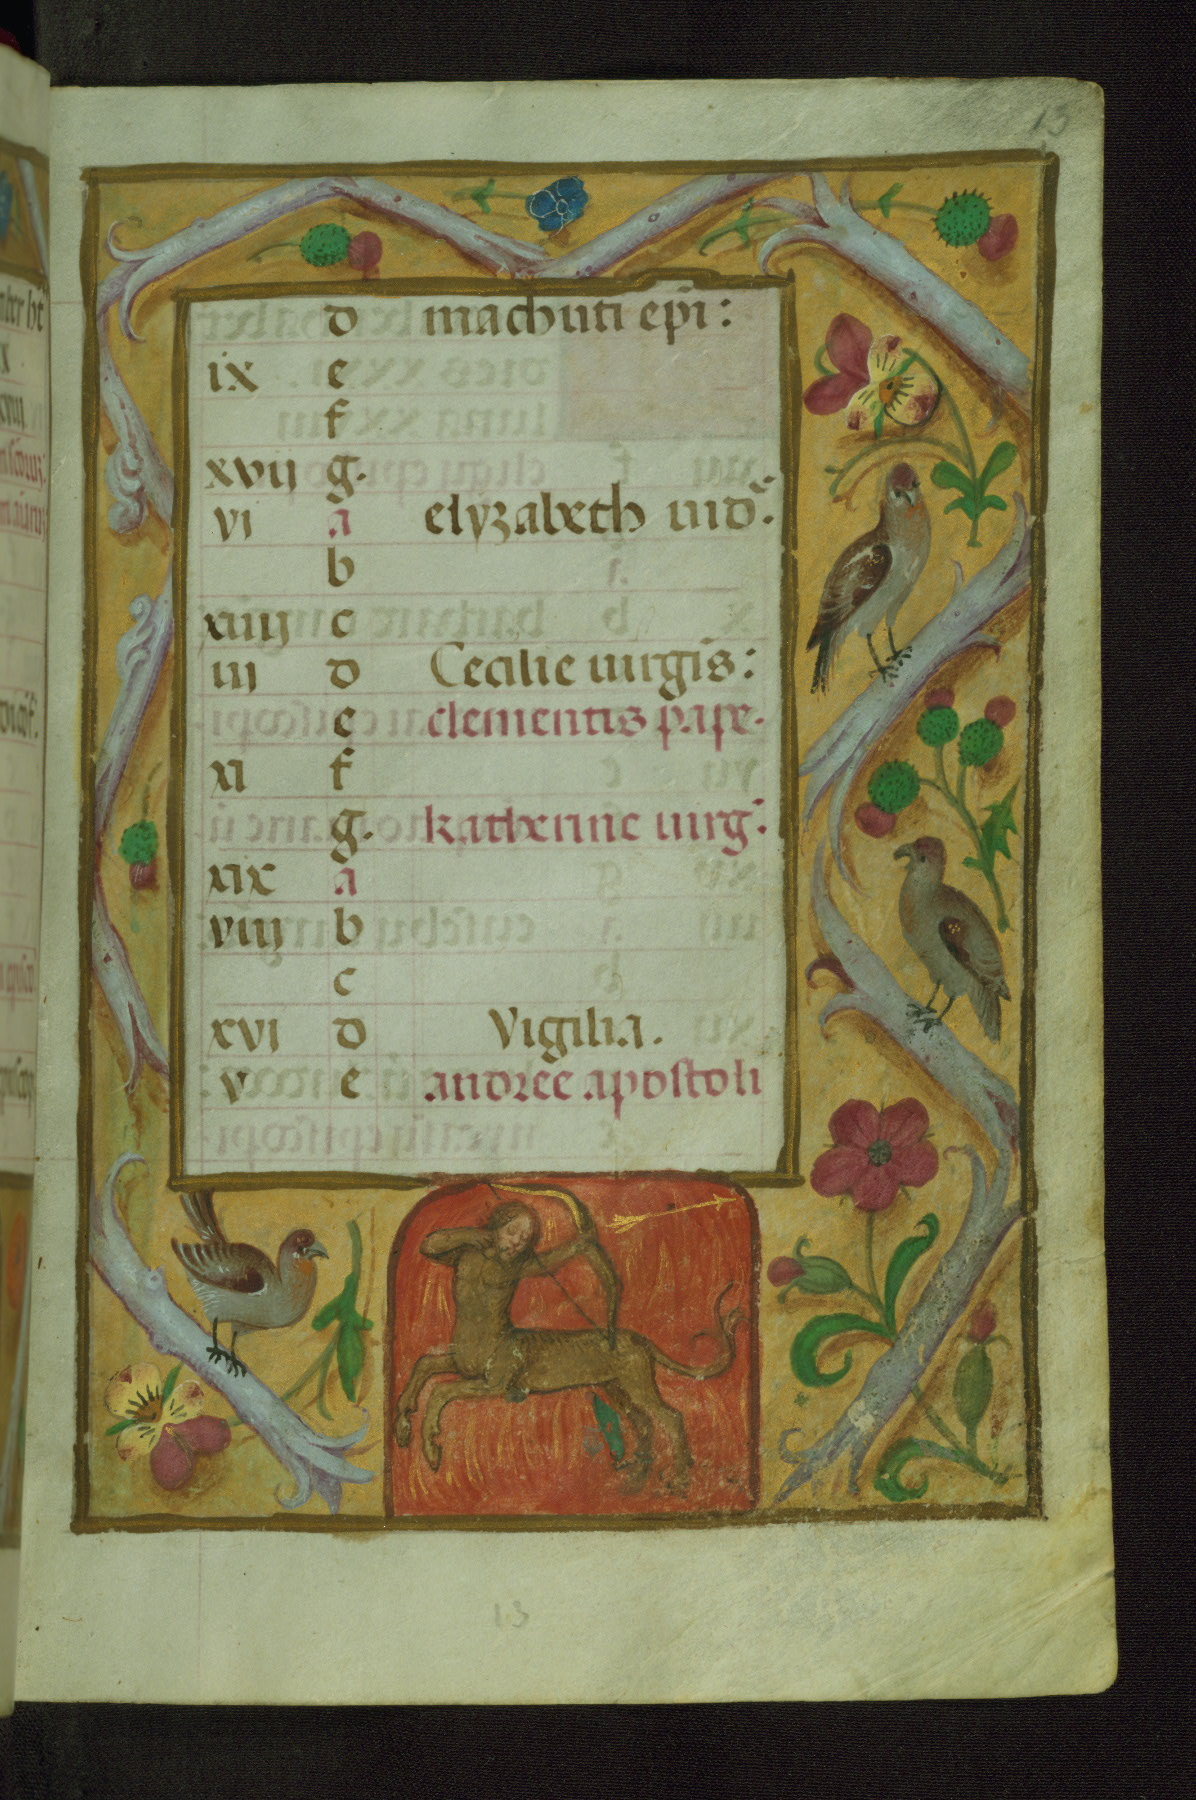 13
d machuti epi:
ix e
f
xvij g.
vi a elyzabeth uid.
b
xiiij c
iii d Cecilie uirgis:
e clementis pape.
xi f
g. katherine uirg:
xix a
viij b
c
xvi d Vigilia.
v e andree apostoli
13